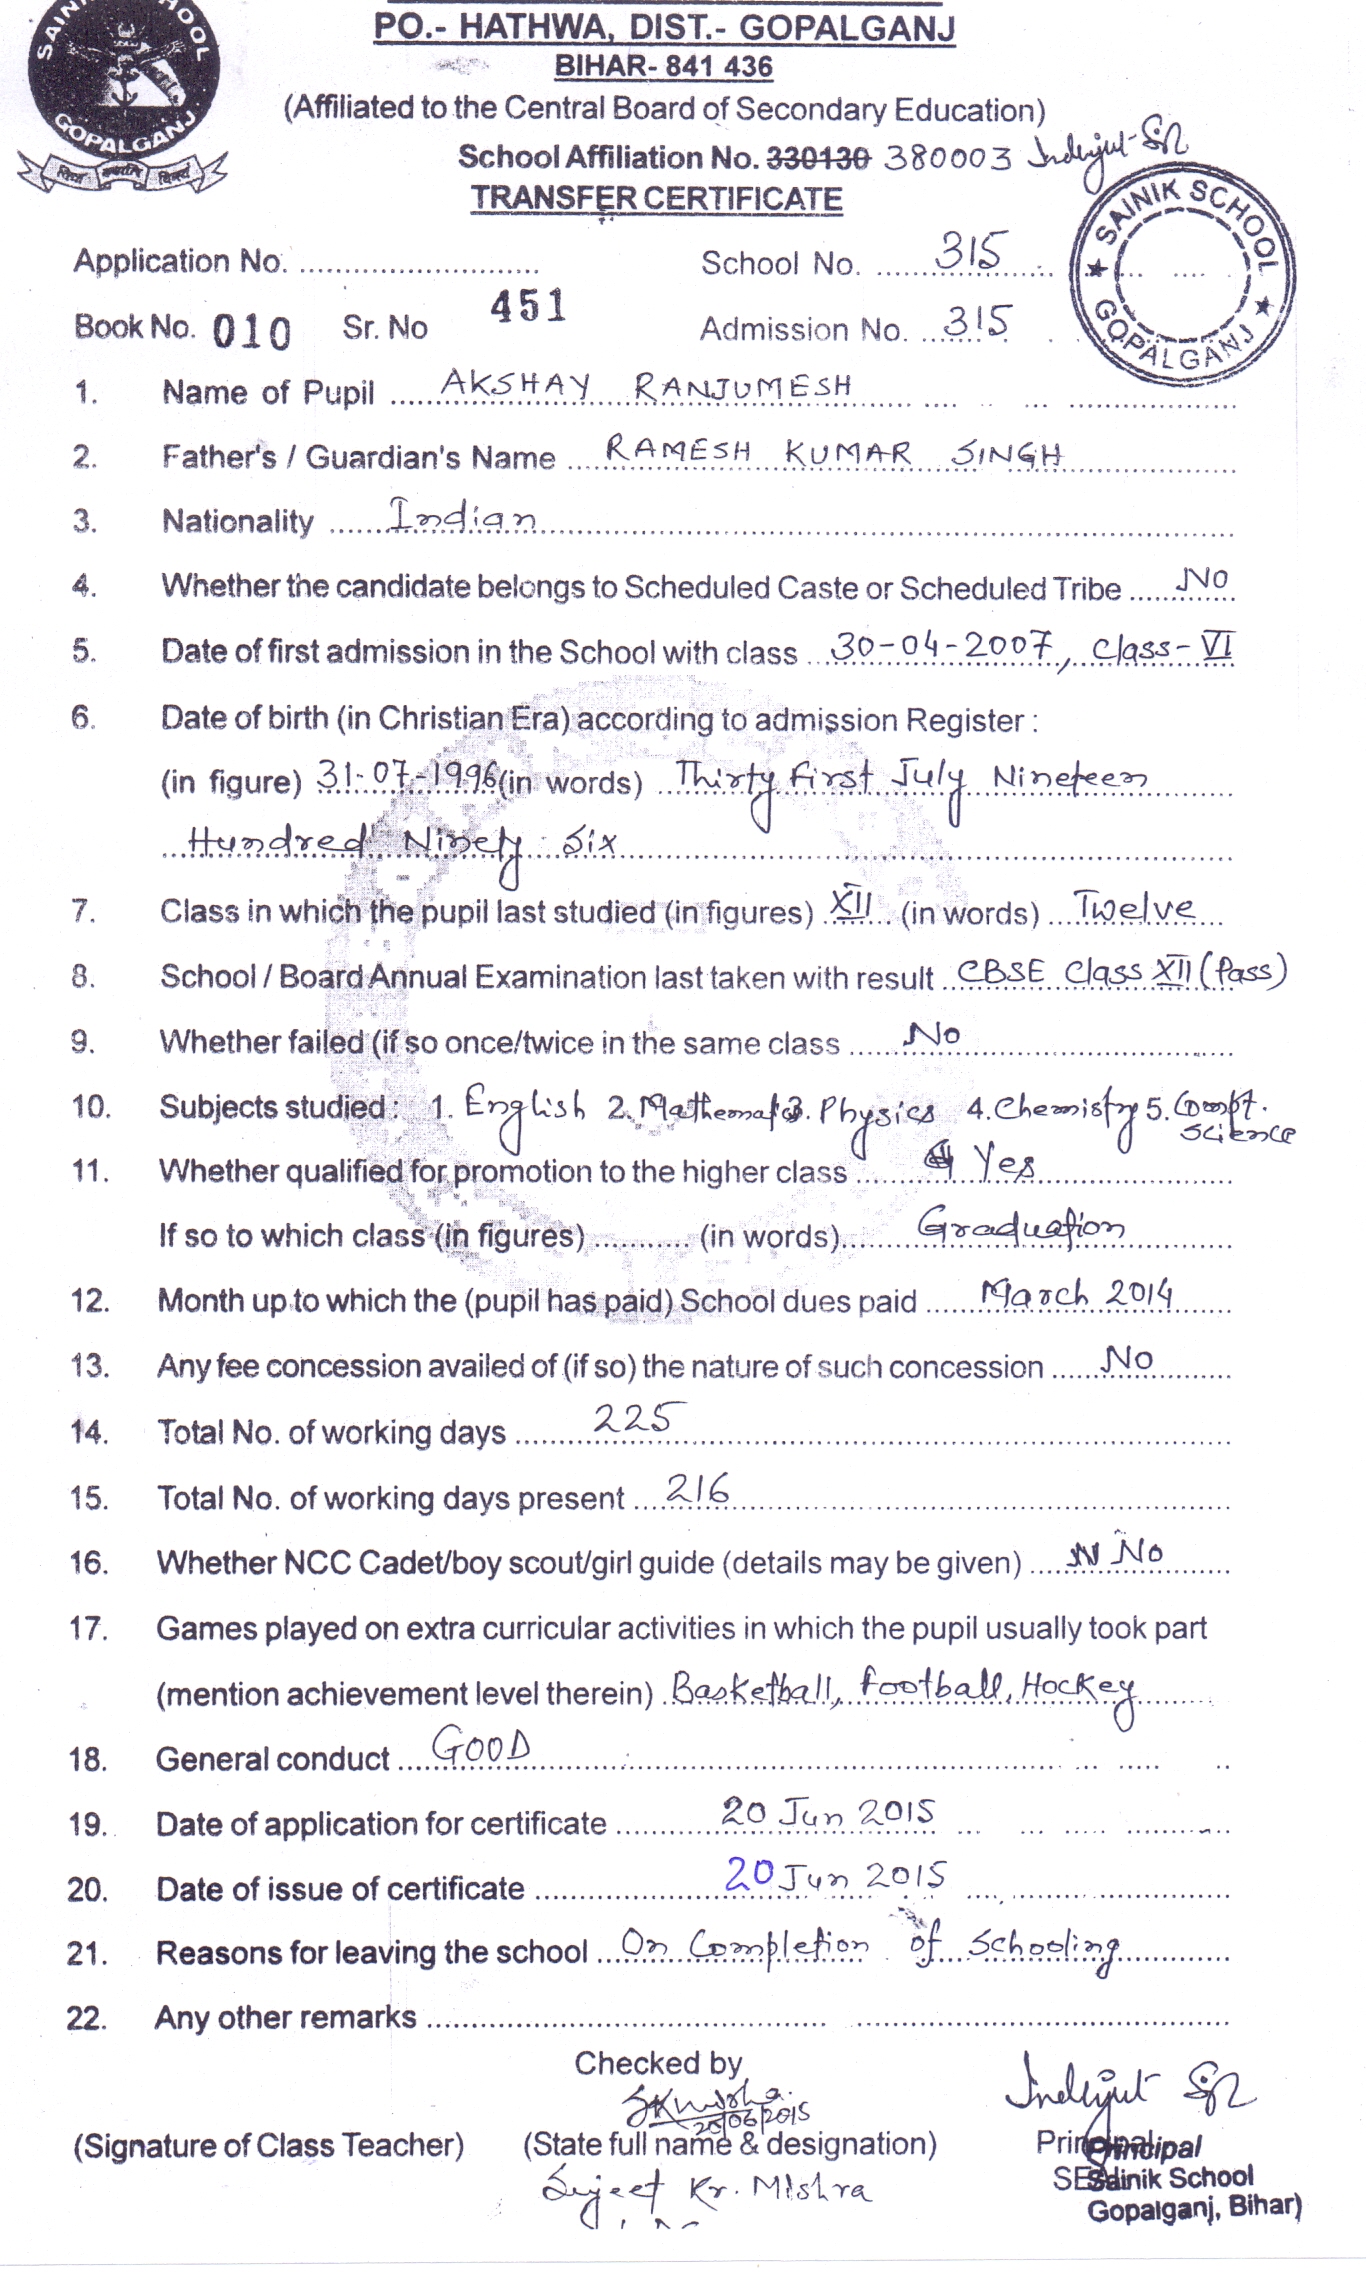 SAINIK SCHOOL
GOPALGANJ
PO.- HATHWA, DIST.- GOPALGANJ
BIHAR- 841 436
(Affiliated to the Central Board of Secondary Education)
School Affiliation No. 330130 380003
TRANSFER CERTIFICATE
SAINIK SCHOOL
GOPALGANJ
Application No. ........ School No. 315
Book No. 010 Sr. No 451 Admission No. 315
1. Name of Pupil AKSHAY RANJUMESH
2. Father's / Guardian's Name RAMESH KUMAR SINGH
3. Nationality Indian
4. Whether the candidate belongs to Scheduled Caste or Scheduled Tribe No
5. Date of first admission in the School with class 30-04-2007, Class-VI
6. Date of birth (in Christian Era) according to admission Register :
(in figure) 31-07-1996 (in words) Thirty First July Nineteen
Hundred Ninety Six
7. Class in which the pupil last studied (in figures) XII (in words) Twelve
8. School / Board Annual Examination last taken with result CBSE Class XII (Pass)
9. Whether failed (if so once/twice in the same class No
10. Subjects studied : 1. English 2. Mathematics 3. Physics 4. Chemistry 5. Compt. Science
11. Whether qualified for promotion to the higher class Yes
If so to which class (in figures) ........ (in words) Graduation
12. Month up to which the (pupil has paid) School dues paid March 2014
13. Any fee concession availed of (if so) the nature of such concession No
14. Total No. of working days 225
15. Total No. of working days present 216
16. Whether NCC Cadet/boy scout/girl guide (details may be given) No
17. Games played on extra curricular activities in which the pupil usually took part
(mention achievement level therein) Basketball, Football, Hockey
18. General conduct GOOD
19. Date of application for certificate 20 Jun 2015
20. Date of issue of certificate 20 Jun 2015
21. Reasons for leaving the school On Completion of Schooling
22. Any other remarks ........
Checked by
20/06/2015
(Signature of Class Teacher) (State full name & designation) Principal
Sujeet Kr. Mishra
Principal
Sainik School
Gopalganj, Bihar)